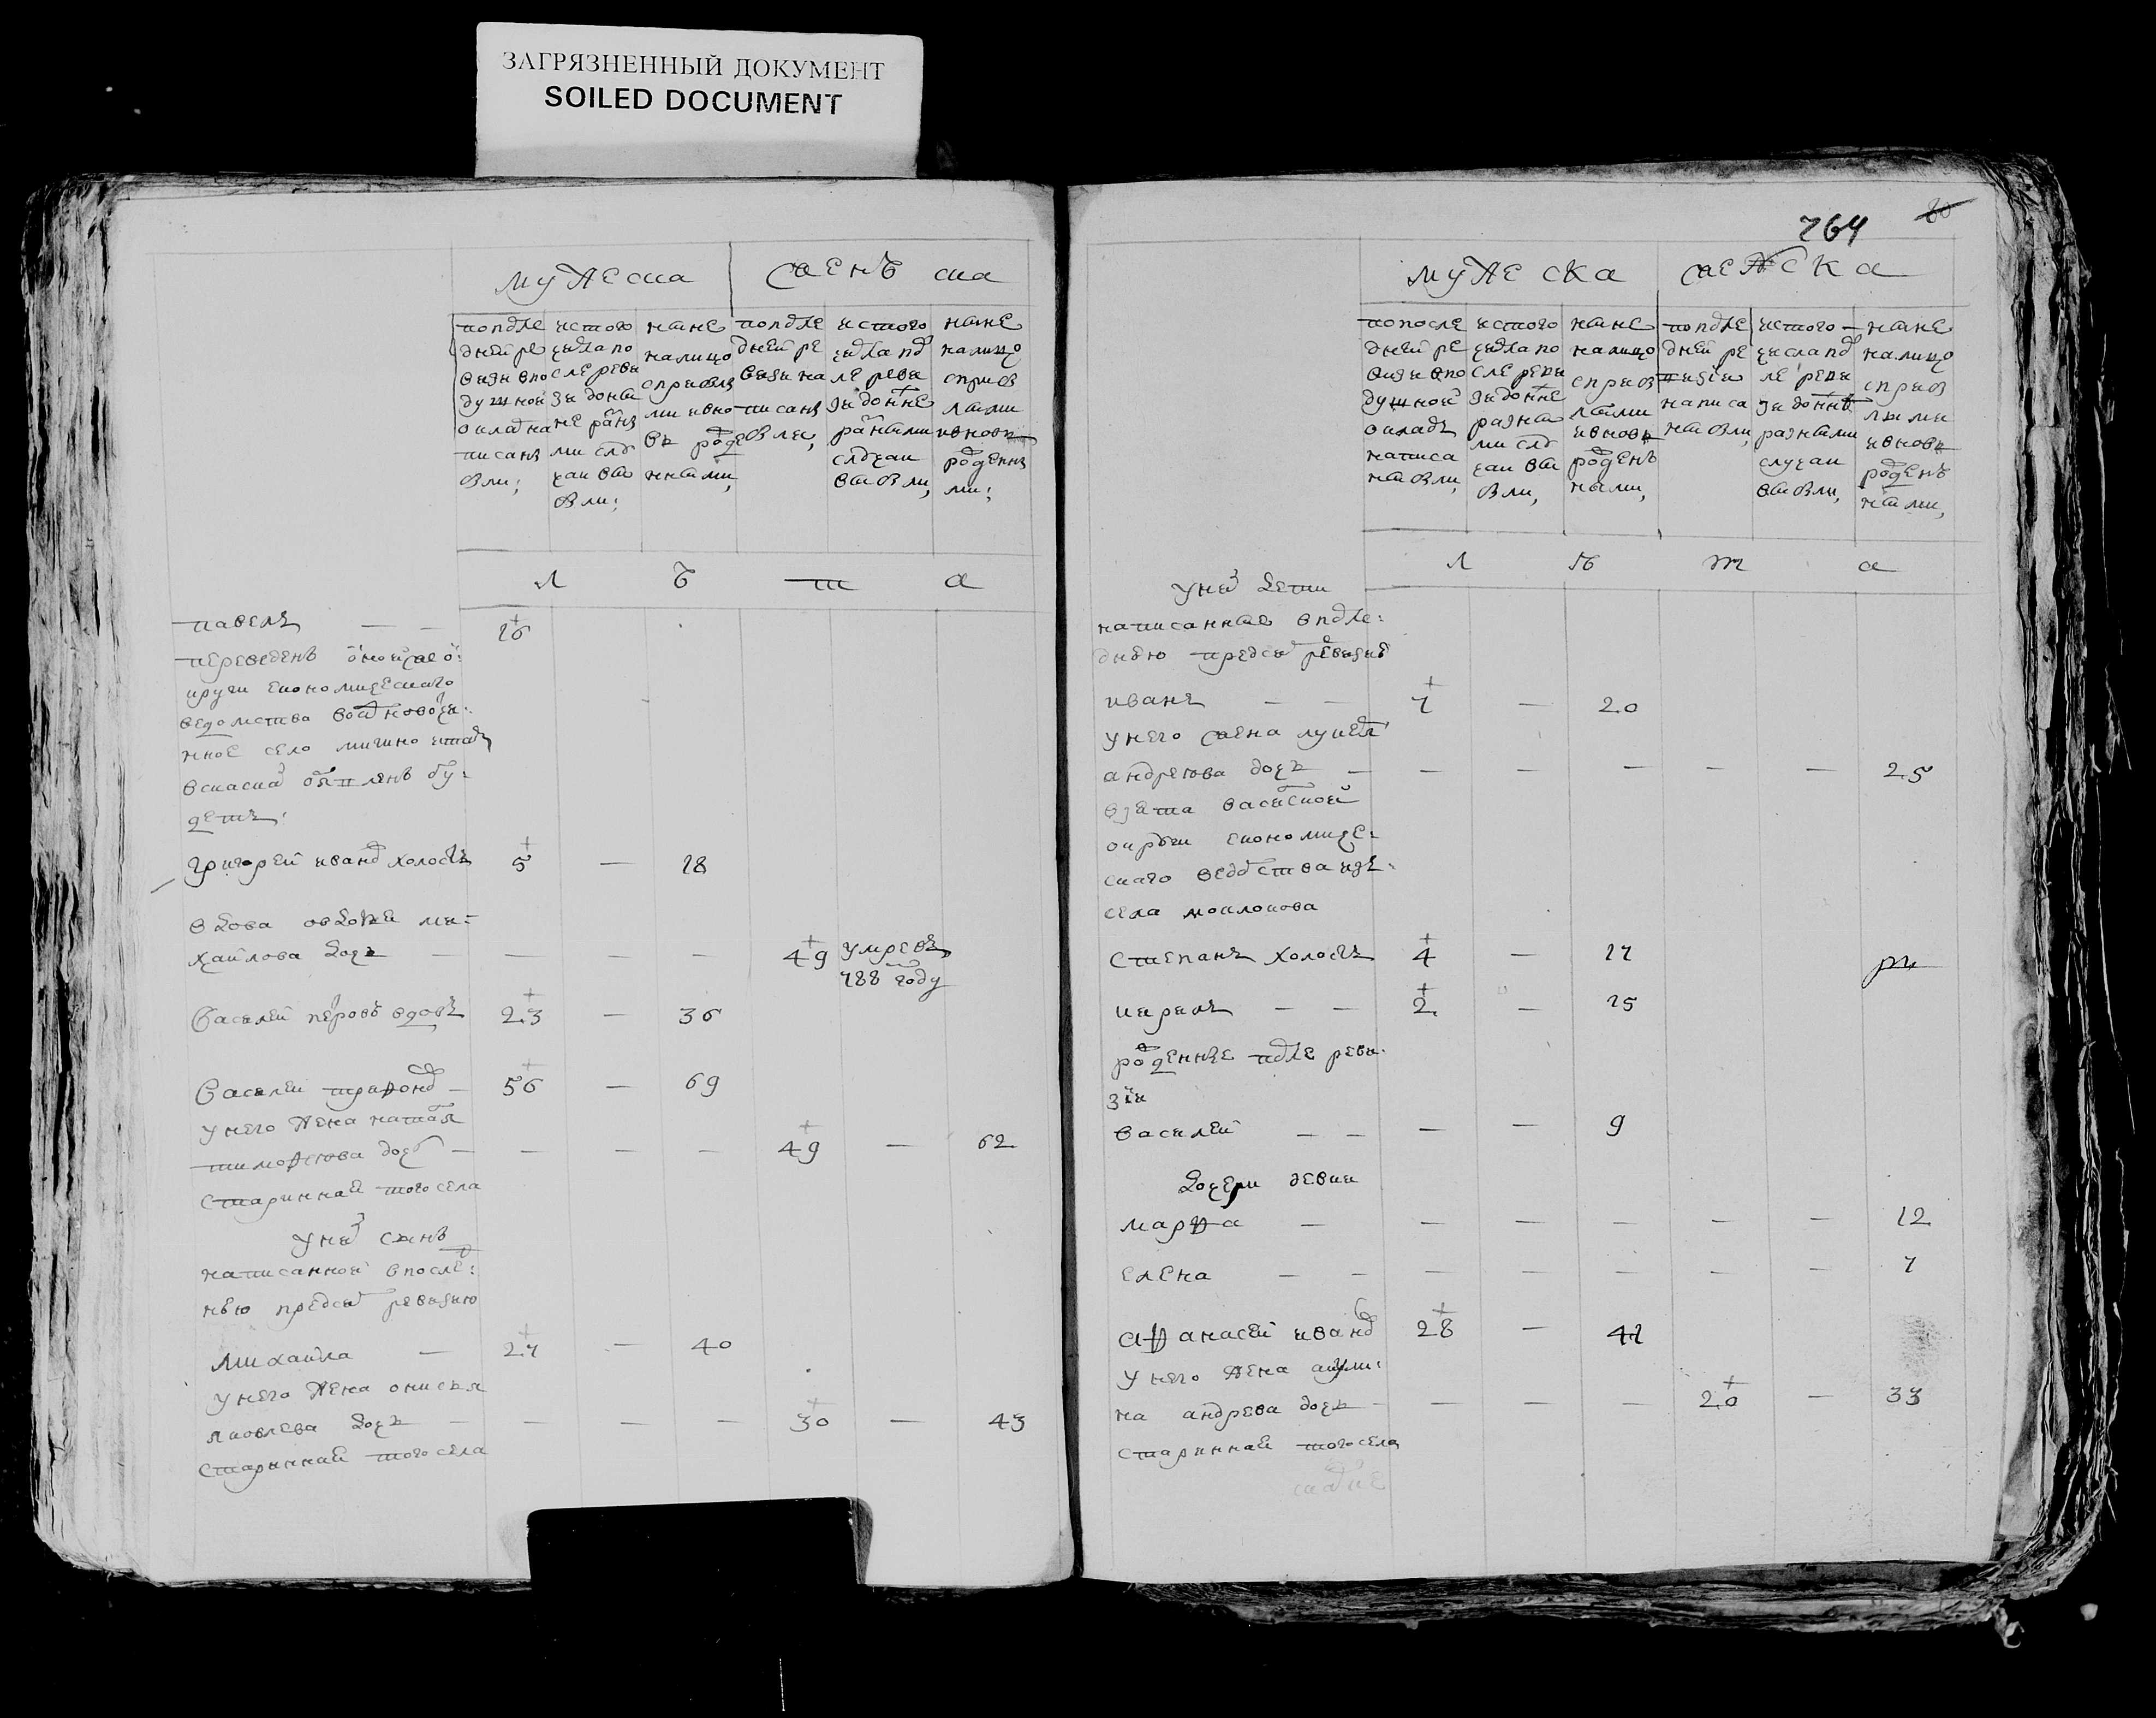 ЗАГРЯЗНЕННЫЙ ДОКУМЕНТ
SOILED DOCUMENT
мужеска женъ ска
по после дней ре визи в по душной оклад на писанъ бли;
ис того числа по сле реви зи до не разны ми слу чаи вы бли;
ныне на лицо с прибы ми и вно въ роже нными,
по после дней ре визи на писанъ бли,
ис того числа пос ле реви зи до не разными случаи выбли,
ныне на лицо с прибы лыми и вновь рожденны ми;
л ѣ т а
павелъ — — 16
переведенъ
економическаго
ведомства во
село мигино
детъ.
григорей иванов холостъ 5 — 18
вдова овдотья ми=
хайлова дочь — — — — 49 умре въ
788 году
василей петровъ вдовъ 23 — 36
василей трифонов — 56 — 69
у него жена наталья
тимофеева дочь — — — — 49 — 62
стариннай того села
у них сынъ
написанной в после:
нью пред сим ревизию
михайла — 27 — 40
у него жена онисья
яковлева дочь — — — — 30 — 43
стариннай того села
764 80
мужеска женска
по после дней ре визи в по душной окладъ написа ны бли,
ис того числа по сле реви зи до не разны ми слу чаи вы бли,
ныне на лицо с прибы лыми и вновь рожденъ ными,
по после дней ре визи написа ны бли,
ис того числа пос ле реви зи до не разными случаи выбли,
ныне на лицо с прибы лыми и вновь рожденъ ными,
л ѣ т а
у них дети
написанные в после:
днею пред сим ревизию
иванъ — — 7 — 20
у него жена лукерья
андреева дочь — — — — — — 25
взята
округи економиче=
скаго ведомства изъ
села моклокова
степанъ холостъ 4 — 17
кирилъ — — 2 — 15
рожденные после реви=
зіи
василей — — — — 9
дочери девки
марфа — — — — — — 12
елена — — — — — — — 7
афанасей иванов 28 — 41
у него жена акули=
на андреева дочь — — — — 20 — 33
стариннай того села